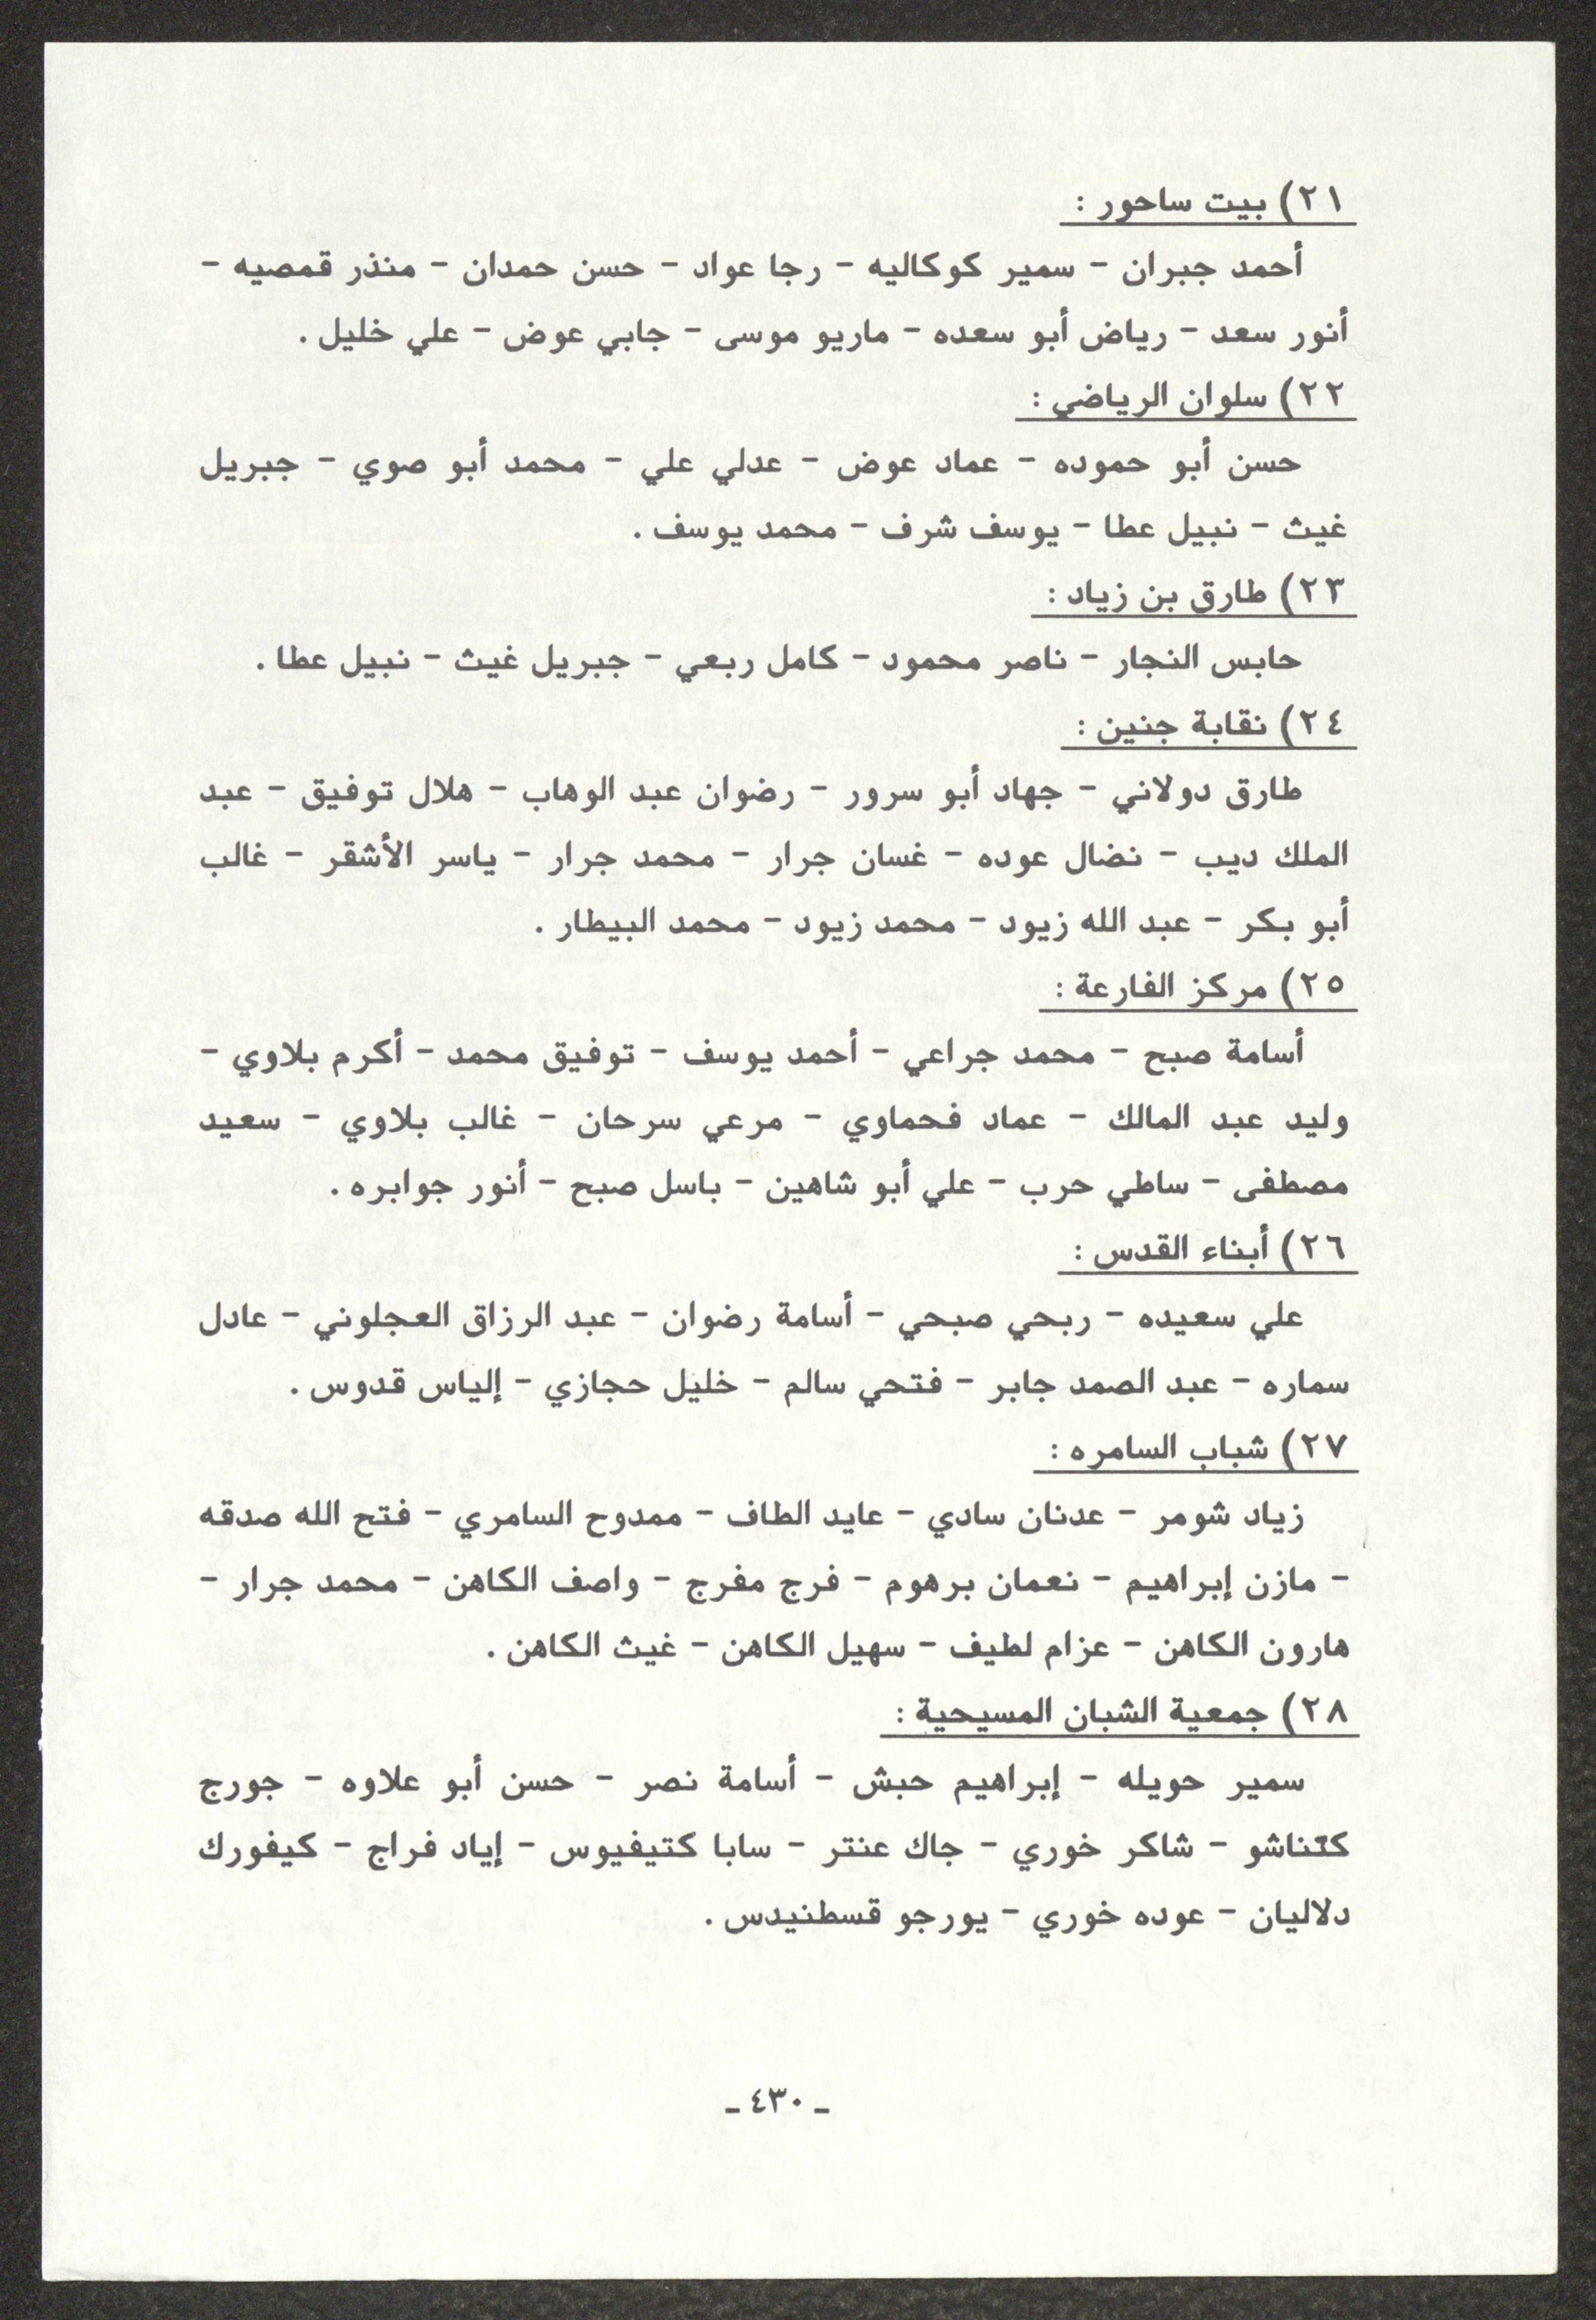 ٢١) بيت ساحور :
أحمد جبران - سمير كوكاليه - رجا عواد - حسن حمدان - منذر قمصيه -
أنور سعد - رياض أبو سعده - ماريو موسى - جابي عوض - علي خليل .
٢٢) سلوان الرياضي :
حسن أبو حموده - عماد عوض - عدلي علي - محمد أبو صوي - جبريل
غيث - نبيل عطا - يوسف شرف - محمد يوسف .
٢٣) طارق بن زياد :
حابس النجار - ناصر محمود - كامل ربعي - جبريل غيث - نبيل عطا .
٢٤) نقابة جنين :
طارق دولاني - جهاد أبو سرور - رضوان عبد الوهاب - هلال توفيق - عبد
الملك ديب - نضال عوده - غسان جرار - محمد جرار - ياسر الأشقر - غالب
أبو بكر - عبد الله زيود - محمد زيود - محمد البيطار .
٢٥) مركز الفارعة :
أسامة صبح - محمد جراعي - أحمد يوسف - توفيق محمد - أكرم بلاوي -
وليد عبد المالك - عماد فحماوي - مرعي سرحان - غالب بلاوي - سعيد
مصطفى - ساطي حرب - علي أبو شاهين - باسل صبح - أنور جوابره .
٢٦) أبناء القدس :
علي سعيده - ربحي صبحي - أسامة رضوان - عبد الرزاق العجلوني - عادل
سماره - عبد الصمد جابر - فتحي سالم - خليل حجازي - إلياس قدوس .
٢٧) شباب السامره :
زياد شومر - عدنان سادي - عايد الطاف - ممدوح السامري - فتح الله صدقه
- مازن إبراهيم - نعمان برهوم - فرج مفرج - واصف الكاهن - محمد جرار -
هارون الكاهن - عزام لطيف - سهيل الكاهن - غيث الكاهن .
٢٨) جمعية الشبان المسيحية :
سمير حويله - إبراهيم حبش - أسامة نصر - حسن أبو علاوه - جورج
كتناشو - شاكر خوري - جاك عنتر - سابا كتيفيوس - إياد فراج - كيفورك
دلاليان - عوده خوري - يورجو قسطنيدس .
ـ ٤٣٠ ـ